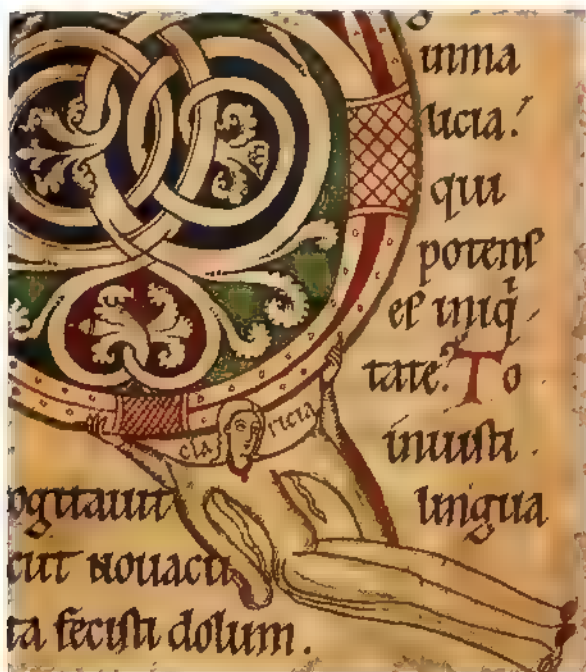 inma
licia.
qui
potens
es iniq
tate. To
iniusti
cla ricia
ogitauit lingua
cut nouacu
ta fecisti dolum.